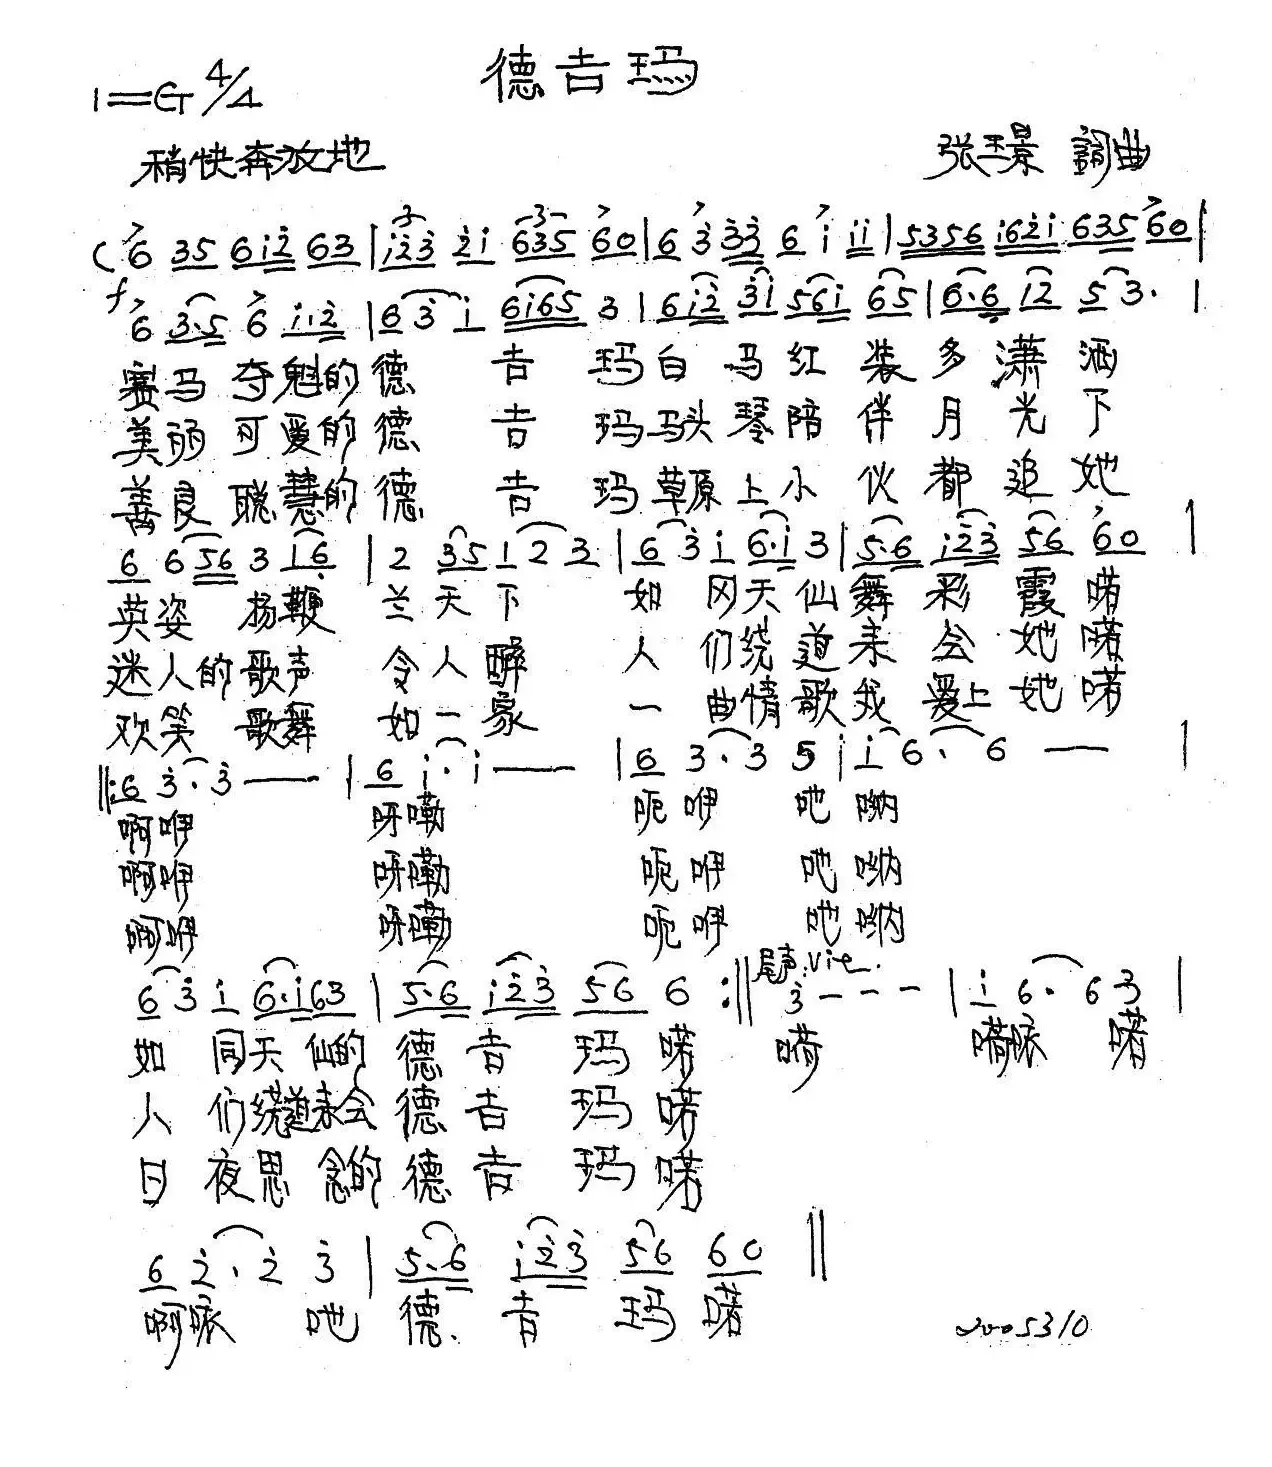 德吉玛
1=G 4/4
稍快奔放地
张玉景 词曲
( 6 35 6i2 63 | i23 2i 635 60 | 6 3 33 6 i ii | 5356 i62i 635 60 |
f
6 3.5 6 i.i2 | 6 3 i 6i65 3 | 6i2 3i 56i 65 | 6.6 12 5 3. |
赛马 夺魁的 德 吉 玛 白 马 红 装 多 潇 洒
美丽 可爱的 德 吉 玛 马头 琴 陪 伴 月 光 下
善良 聪慧的 德 吉 玛 草原 上 小 伙 都 追 她
6 6 56 3 16 | 2 35 1 2 3 | 6 3 i 6.i 3 | 5.6 i23 56 60 |
英姿 杨鞭 兰天下 如 冈天仙舞彩霞喏
迷人的歌声 令人醉 人们绕道来会她喏
欢笑 歌舞 如一家 一曲情歌我爱上她喏
||: 6 3.3 — | 6 i.i — | 6 3.3 5 | i 6. 6 — |
啊咿 呀嘞 呃咿 吔 哟
啊咿 呀嘞 呃咿 吔 哟
啊咿 呀嘞 呃咿 吔 哟
尾声:vie.
6 3 i 6.i63 | 5.6 i23 56 6 :|| 3 - - - | i 6. 6 3 |
如 同天仙的 德吉玛喏 嗬 嗬 喏
人们绕道来会 德吉玛喏
日夜思念的 德吉玛喏
6 2. 2 3 | 5.6 i23 56 60 ||
啊 吔 德.吉 玛 喏
2005310